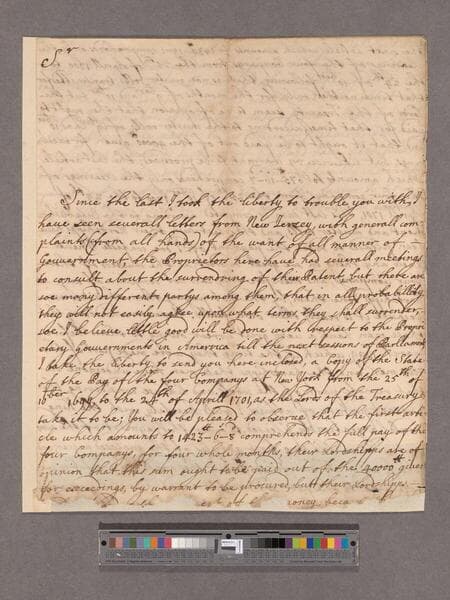 Sr
Since the last I took the liberty to trouble you with, I
have seen severall letters from New Jerzey, with generall com
plaints (from all hands) of the want of all manner of
Gouvernment, the Proprietors here have had severall meetings
to consult about the surrendring of their Patent, but there are
soe many different partys among them, that in all probabillity
they will not easily agree upon what terms they shall surrender,
soe I believe little good will be done with respect to the Propri
etary Gouvernments in America till the next sessions of Parliament
I take the liberty to send you here inclosed, a copy of the State
of the Pay of the four Companys at New York from the 25th of
to the 24th of Aprill 1701, as the Lords of the Treasury
take it to be; You will be pleased to observe that the first arti
cle which amounts to 1423-6-8 comprehends the full pay of the
four companys, for four whole months, their Lordshipps are of
opinion that this sum ought to be paid out of the 40000tt given
for exceedings, by warrant to be procured, butt their Lordshipps